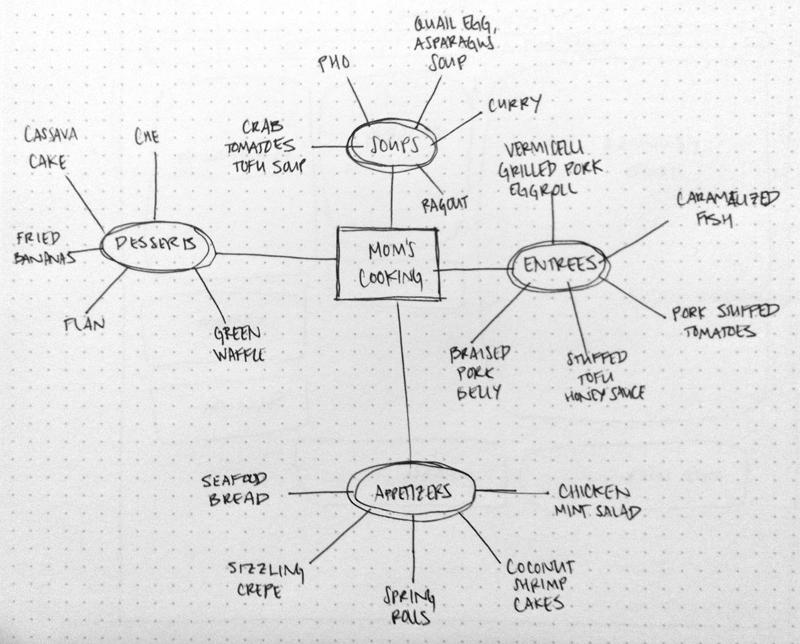 QUAIL EGG,
ASPARAGUS
SOUP
PHO
CURRY
CRAB
TOMATOES
TOFU SOUP
SOUPS
RAGOUT
CASSAVA
CAKE
CHE
FRIED
BANANAS
DESSERTS
FLAN
GREEN
WAFFLE
MOM'S
COOKING
VERMICELLI
GRILLED PORK
EGGROLL
CARAMALIZED
FISH
ENTREES
PORK STUFFED
TOMATOES
BRAISED
PORK
BELLY
STUFFED
TOFU
HONEY SAUCE
SEAFOOD
BREAD
APPETIZERS
CHICKEN
MINT SALAD
SIZZLING
CREPE
SPRING
ROLLS
COCONUT
SHRIMP
CAKES